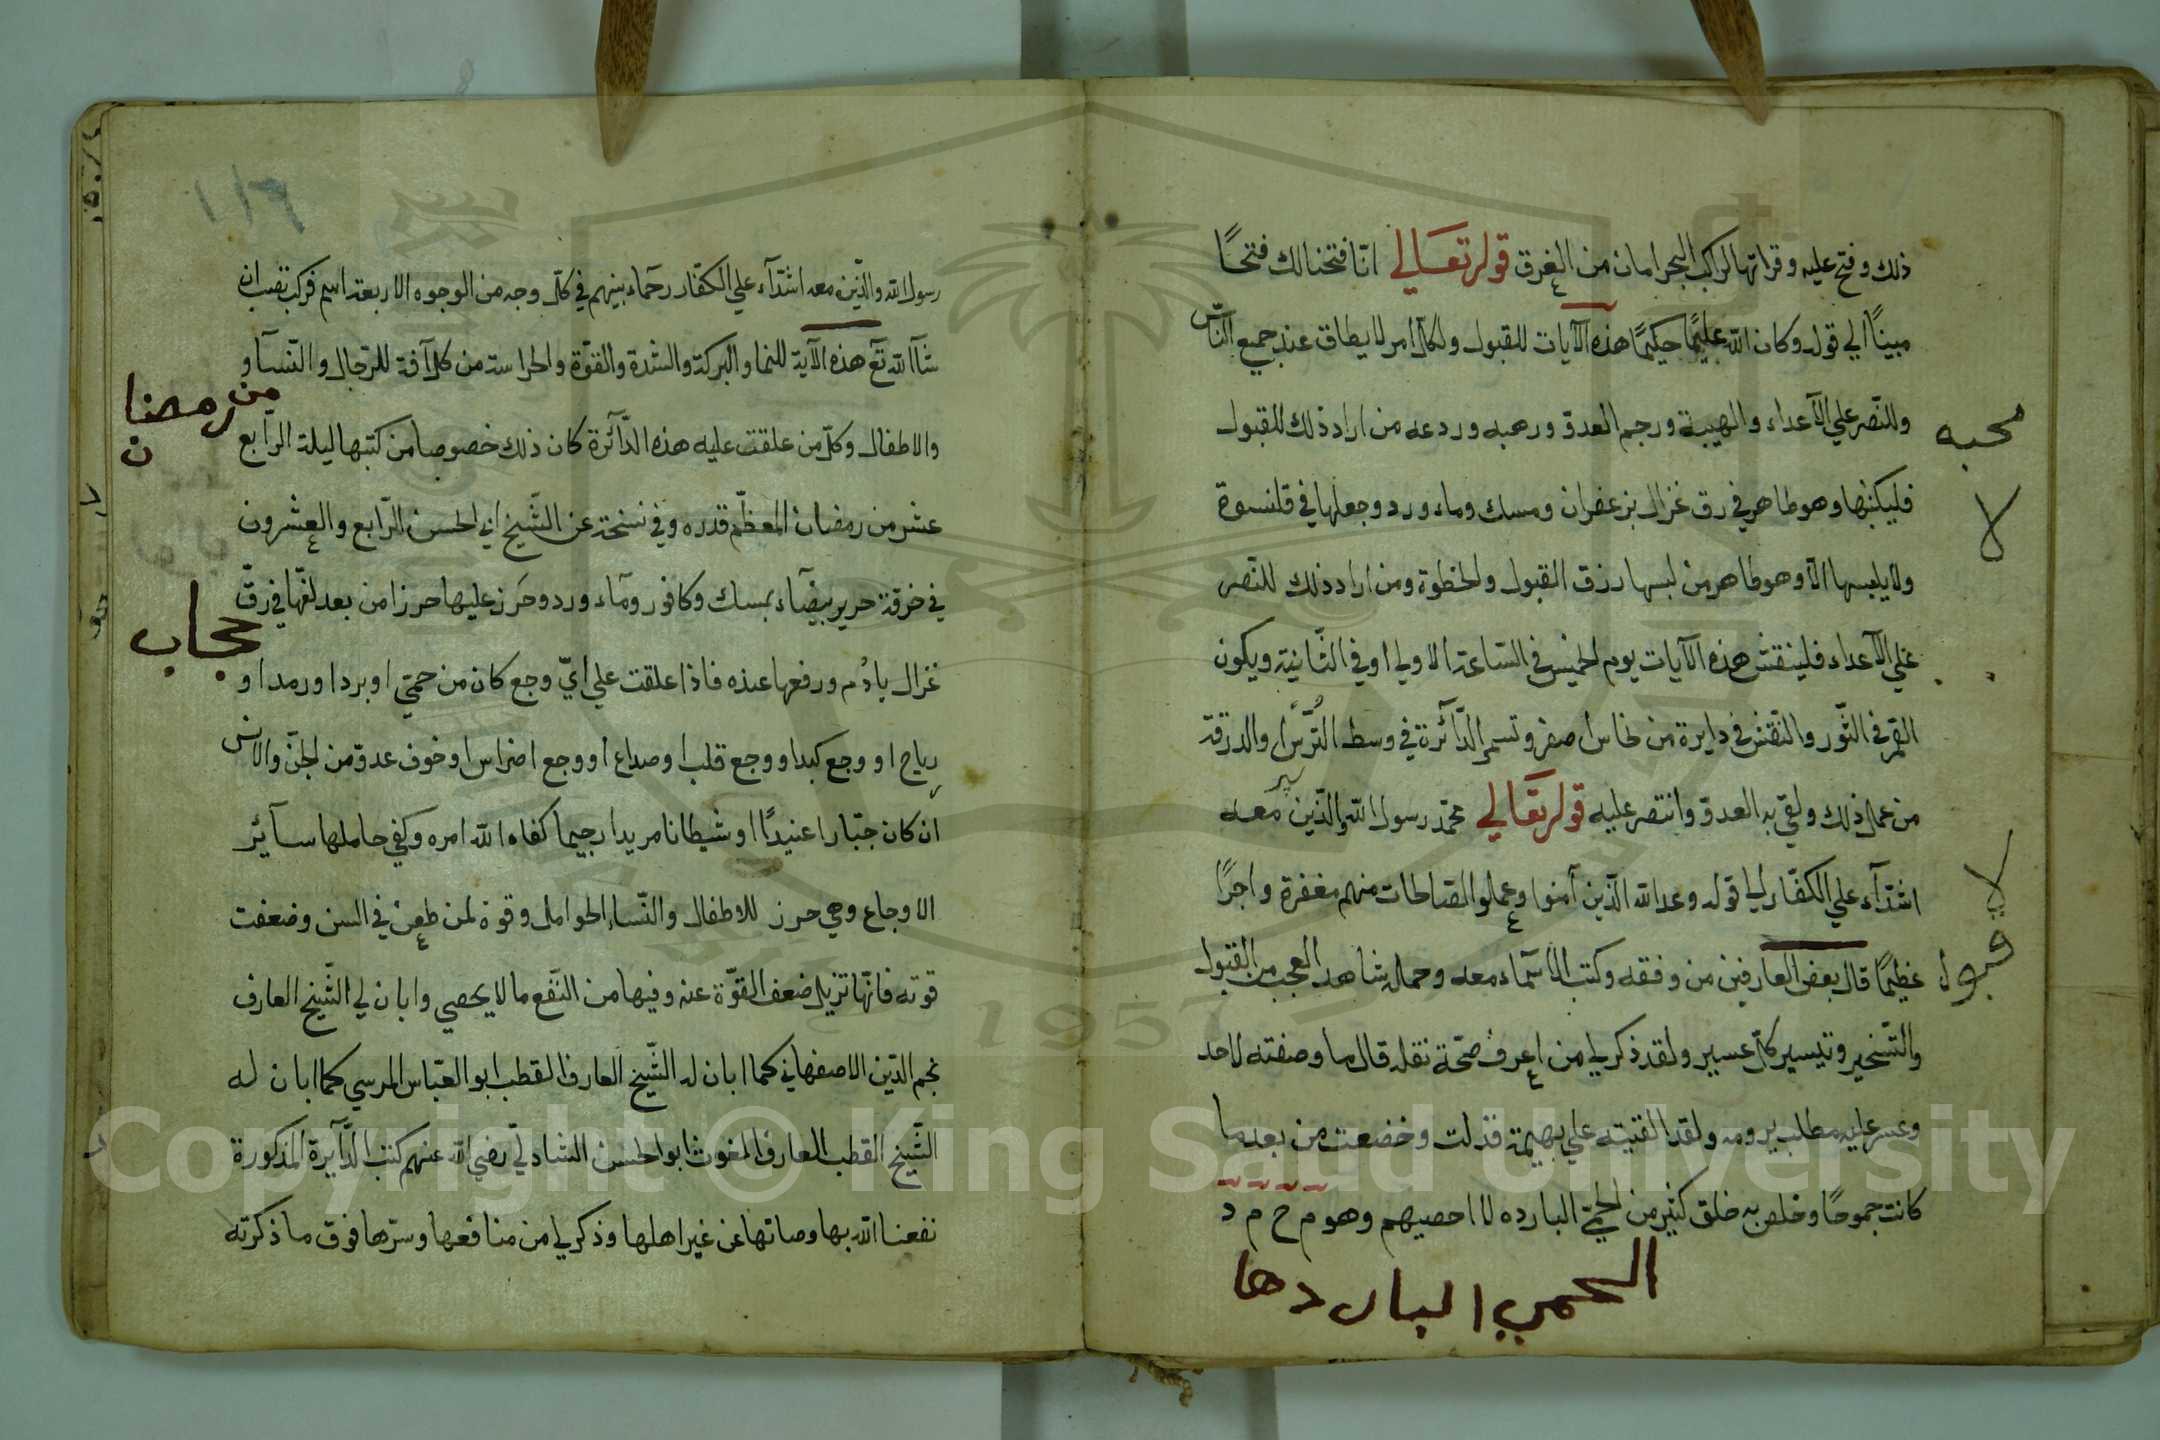 ذلك وفتح عليه وقراتها لراكب البحر امان من الغرق قوله تعالي انّا فتحنا لك فتحًا
مبينًا الي قوله وكان الله عليمًا حكيمًا هذه الآيات للقبول ولكل امر لا يطاق عند جميع الناس
وللنّصر علي الاعداء والهيبة ورجم العدوّ ورهبه وردعه من اراد ذلك للقبول
محبه
لا
فليكتبها وهو طاهر في رق غزال بزعفران ومسك وماء ورد وجعلها في قلنسوة
ولا يلبسها الّا وهو طاهر من لبسها رزق القبول والحظوة ومن اراد ذلك للنّصر
علي الاعداء فلينقش هذه الآيات يوم الخميس في السّاعة الاولي او في الثّانية ويكون
القمر في الثّور والنّقش في دايرة من نحاس اصفر وتسمر الدّائرة في وسط التّرس او الدرقة
من عمل ذلك ولقي به العدوّ وانتصر عليه قوله تعالي محمّد رسول الله والّذين معه
اشدّآء علي الكفّار الي قوله وعد الله الّذين آمنوا وعملوا الصّالحات منهم مغفرة واجرًا
لا
قبول
عظيمًا قال بعض العارفين من وفقه وكتب الاسماء معه وحمله شاهد العجب من القبول
والتّسخير وتيسير كلّ عسير ولقد ذكر لي من اعرف صحّة نقله قال ما وصفته لاحد
وعسر عليه مطلب يرومه ولقد القيته علي بهيمة فذلت وخضعت من بعد ما
كانت جموحًا وخلص به خلق كثير من الحمّي البارده لا احصيهم وهو م ح م د
الحمي الباردها
١١٦
رسول الله والّذين معه اشدّآء علي الكفّار رحماء بينهم في كلّ وجه من الوجوه الاربعة اسم فركب تصب ان
شآء الله تع هذه الآية للنما والبركة والشدة والقوّة والحراسة من كل آفة للرّجال والنّسآء و
من رمضا
ن
والاطفال وكلّ من علقت عليه هذه الدّآئرة كان ذلك خصوصا من كتبها ليلة الرّابع
عشر من رمضان المعظّم قدره وفي نسخة عن الشّيخ ابي الحسن الرّابع والعشرون
في خرقة حرير بيضآء بمسك وكافور ومآء ورد وحرز عليها حرزا من بعد لفّها في رقّ
حجاب
غزال يا دُم ورفعها عنده فاذا علقت علي ايّ وجع كان من حمّي او برد او رمد او
رياح او وجع كبد او وجع قلب او صداع او وجع اضراس او خوف عدوّ من الجنّ والانس
ان كان جبّارا عنيدًا او شيطانا مريدا رجيما كفاه الله امره وكفي حاملها سآئر
الاوجاع وهي حرز للاطفال والنّساء الحوامل وقوة لمن طعن في السن وضعفت
قوته فانّها تزيل ضعف القوّة عنه وفيها من النّفع ما لا يحصي وابان لي الشّيخ العارف
نجم الدّين الاصفهاني كما ابان له الشّيخ العارف القطب ابو العبّاس المرسي كما ابان له
الشّيخ القطب العارف الغوث ابو الحسن الشاذلّي رضي الله عنهم كتب الدّآيرة المذكورة
نفعنا الله بها وصانها عن غير اهلها وذكر لي من منافعها وسرّها فوق ما ذكرته
1957
Copyright © King Saud University